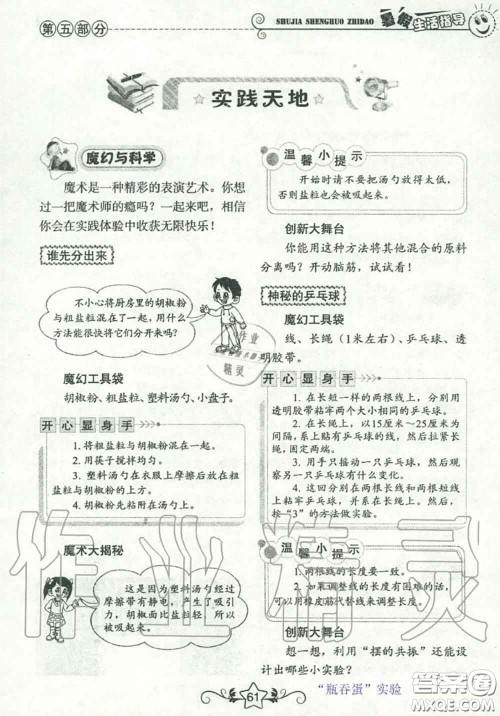 第五部分
SHUJIA SHENGHUO ZHIDAO
暑假生活指导
实践天地
魔幻与科学
魔术是一种精彩的表演艺术。你想
过一把魔术师的瘾吗？一起来吧，相信
你会在实践体验中收获无限快乐！
谁先分出来
不小心将厨房里的胡椒粉
与粗盐粒混在了一起，用什么
方法能很快将它们分开来呢？
魔幻工具袋
胡椒粉、粗盐粒、塑料汤勺、小盘子。
开心显身手
1. 将粗盐粒与胡椒粉混在一起。
2. 用筷子搅拌均匀。
3. 塑料汤勺在衣服上摩擦后放在粗
盐粒与胡椒粉的上方。
4. 胡椒粉先粘附在汤勺上。
魔术大揭秘
这是因为塑料汤勺经过
摩擦带有静电，产生了吸引
力，胡椒面比盐粒轻，所以
被吸起来。
温馨小提示
开始时请不要把汤勺放得太低，
否则盐粒也会被吸起来。
创新大舞台
你能用这种方法将其他混合的原料
分离吗？开动脑筋，试试看！
神秘的乒乓球
魔幻工具袋
线、长绳（1米左右）、乒乓球、透
明胶带。
开心显身手
1. 在长短一样的两根线上，分别用
透明胶带粘牢两个大小相同的乒乓球。
2. 在长绳上，以15厘米～25厘米为
间隔，系上挂有乒乓球的线，然后拉紧
长绳，固定两端。
3. 用手只摇动一只乒乓球，然后观
察另一只乒乓球有什么变化。
4. 这回分别在两根长线和两根短线
上粘牢乒乓球，并将其挂在长绳上，然后
按“3”的方法做实验。
温馨小提示
1. 两根线的长度要一致。
2. 如果调整线的长度有困难的话，
可以用橡皮筋代替线来调整长度。
创新大舞台
想一想，利用“摆的共振”还能设
计出哪些小实验？
“瓶吞蛋”实验
61
作业精灵
作业
精灵
答案圈
MXQE.COM